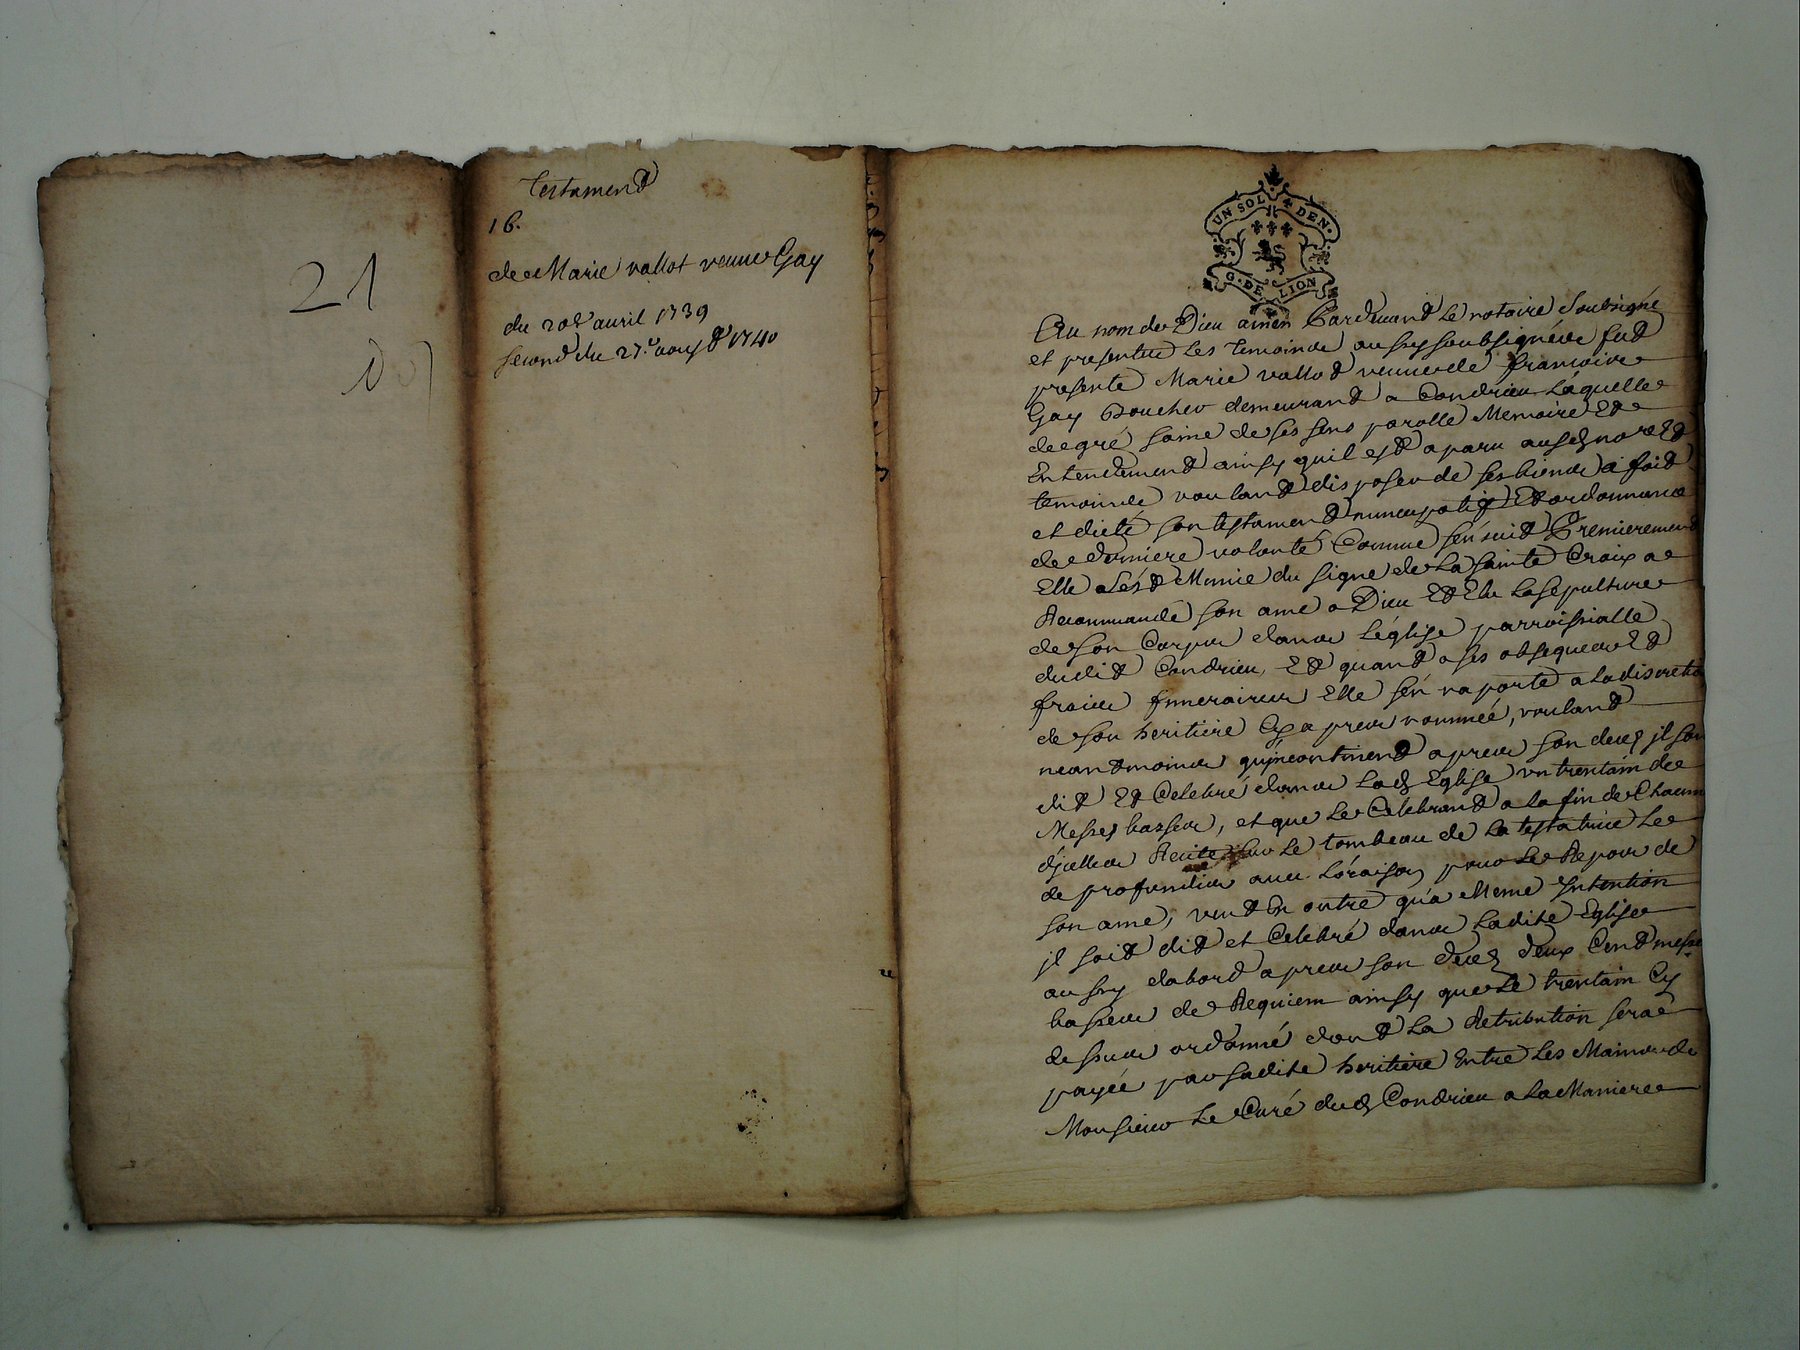 21
Testament
16.
de Marie vallot veuve Gay
du 20e avril 1739
second du 27.e aoust 1740
UN SOL 4 DEN.
G. DE LION
Au nom de Dieu amen Pardevant le notaire soubsigné
et presentz les temoins aussy soubsignés fut
presente Marie vallot veuve de françois
Gay Boucher demeurant a Condrieu laquelle
de gré saine de ses sens parolle Memoire Et
Entendement ainsy quil est aparu ausd nore Et
temoins voulant disposer de ses biens a fait
et dicté son testament nuncupatif Et ordonnance
de derniere volonté Comme sen suit Premierement
Elle sest Munie du signe de la sainte Croix a
Recommandé son ame a Dieu Et Elu la sepulture
de son Corps dans l'église parroissialle
dudit Condrieu, Et quant a ses obseques Et
frais funeraires Elle s'en raporte a la discretion
de son heritiere Cy apres nommée, voulant
neantmoins qu'incontinent apres son deces il soit
dit Et Celebré dans lad Eglise un trentain de
Messes basses, et que le Celebrant a la fin de Chacune
d'jcelles Recite sur le tombeau de la testatrice le
de profundis avec l'oraison pour le Repos de
son ame, veut En outre qu'a Meme Intention
jl soit dit et Celebré dans ladite Eglise
aussy dabord apres son deces deux Cent messes
basses de Requiem ainsy que le trentain Cy
dessus ordonné dont la Retribution sera
payée par sadite heritiere Entre les Mains de
Monsieur le Curé dud Condrieu a la Maniere